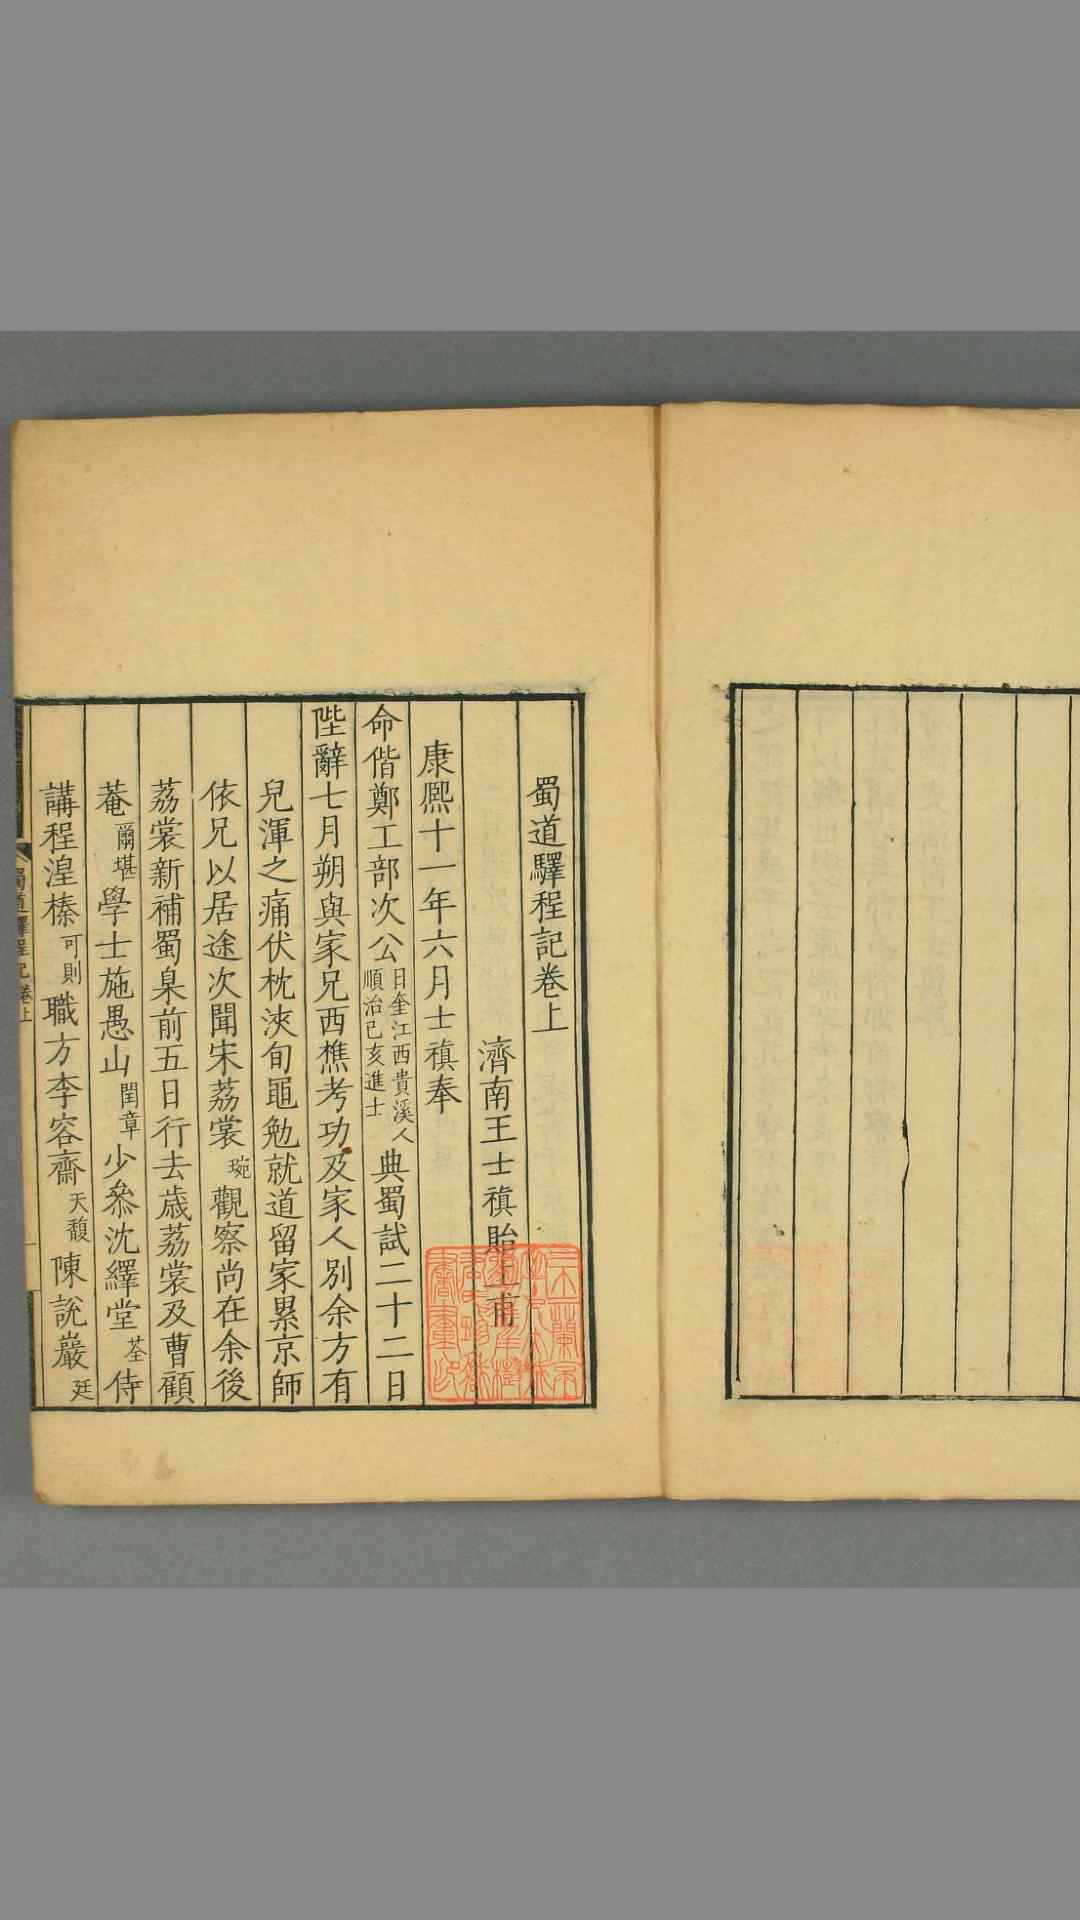 蜀道驛程記卷上
濟南王士禛貽上甫
康熙十一年六月士禛奉
命偕鄭工部次公日奎江西貴溪人順治己亥進士典蜀試二十二日
陛辭七月朔與家兄西樵考功及家人別余方有
兒渾之痛伏枕浹旬黽勉就道留家累京師
依兄以居途次聞宋荔裳琬觀察尚在余後
荔裳新補蜀臬前五日行去歲荔裳及曹顧
菴爾堪學士施愚山閏章少叅沈繹堂荃侍
講程湟榛可則職方李容齋天馥陳說巖廷
蜀道驛程記卷上
一